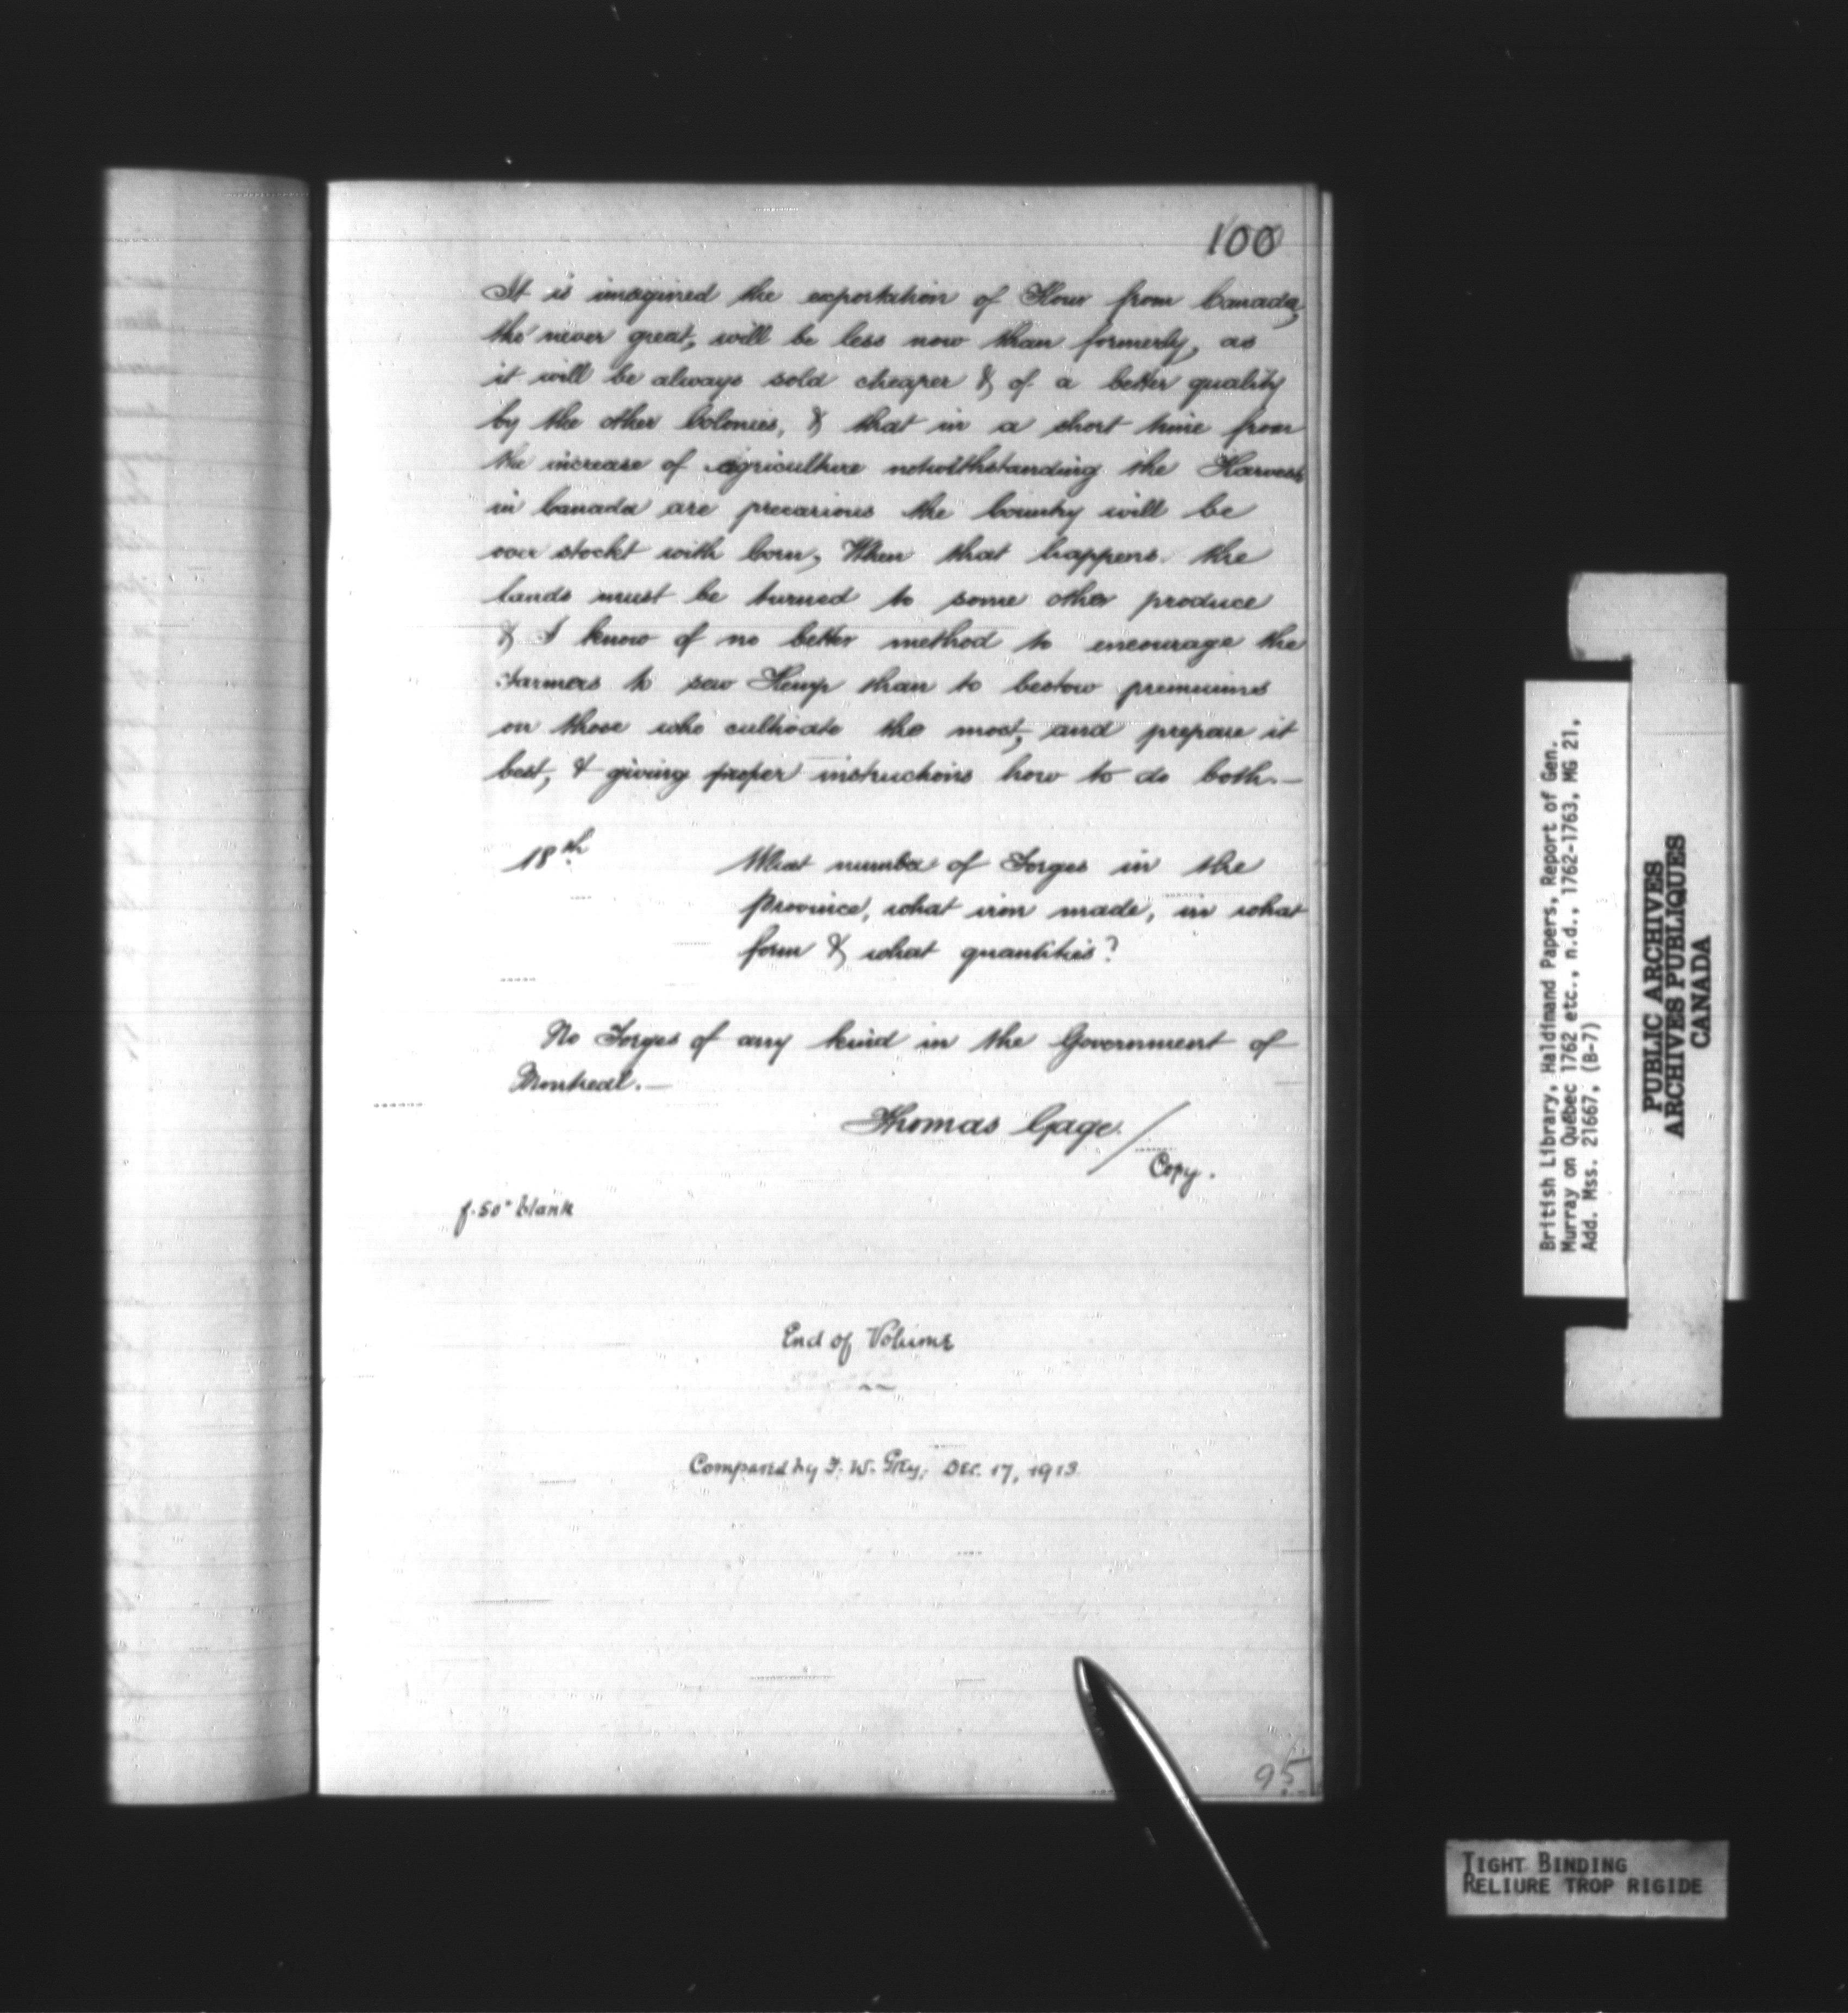 100
It is imagined the exportation of Flour from Canada,
tho' never great, will be less now than formerly, as
it will be always sold cheaper & of a better quality
by the other Colonies, & that in a short time from
the increase of agriculture notwithstanding the Harvests
in Canada are precarious the Country will be
over stockt with Corn, When that happens the
lands must be turned to some other produce
& I know of no better method to encourage the
Farmers to sow Hemp than to bestow premiums
on those who cultivate the most, and prepare it
best, & giving proper instructions how to do both.—
18th What number of Forges in the
Province, what iron made, in what
form & what quantities?
No Forges of any kind in the Government of
Montreal.—
Thomas Gage /
Copy.
f. 50 blank
End of Volume
Compared by F. W. Grey; Dec. 17, 1913
95
British Library, Haldimand Papers, Report of Gen.
Murray on Québec 1762 etc., n.d., 1762-1763, MG 21,
Add. Mss. 21667, (B-7)
PUBLIC ARCHIVES
ARCHIVES PUBLIQUES
CANADA
TIGHT BINDING
RELIURE TROP RIGIDE